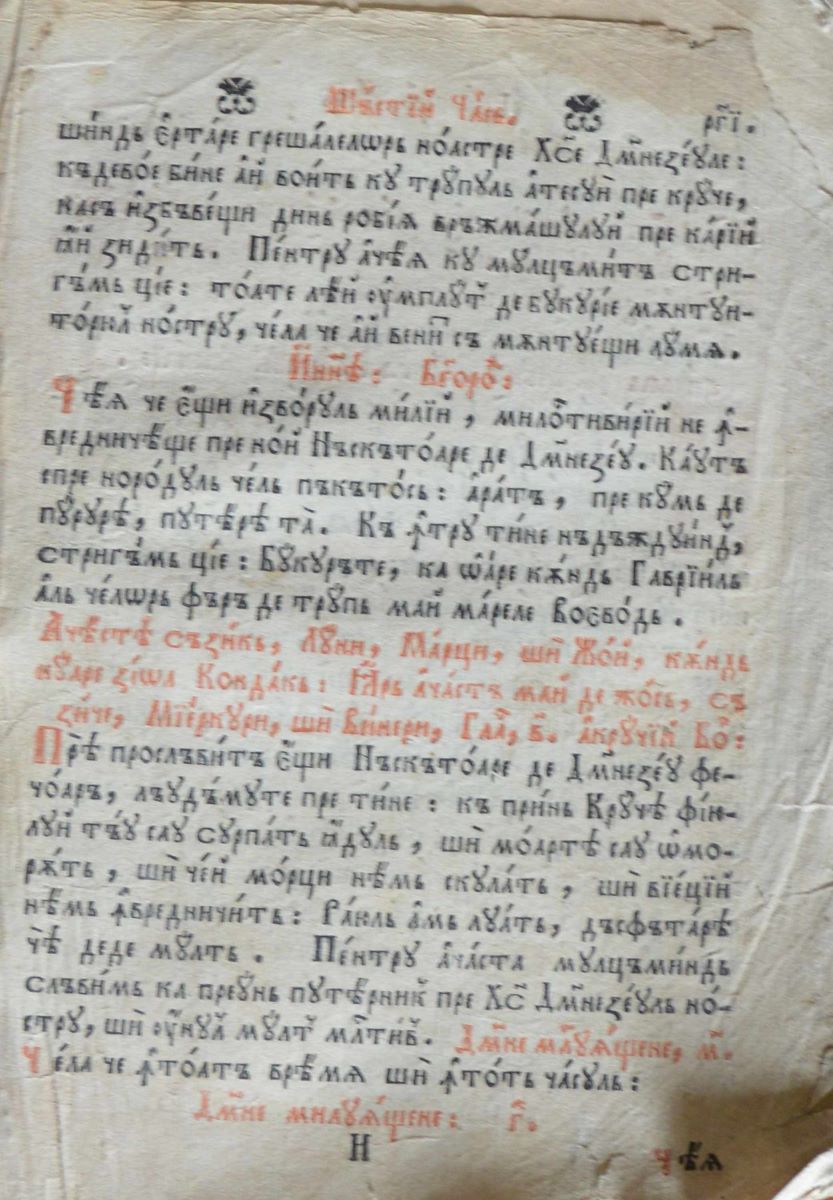 Шⷭ҇стїи Часв. рг҃ї.
шиндь є҆ртаре грешалелѡрь ноастре Хс҃е Дм҃незеꙋле:
къдебое бине аи воить кꙋ трꙋпꙋль атесꙋи пре крꙋче,
насъ избъвещи динь робїѧ връжмашꙋлꙋи пре карїи
ꙗи зидить. Пентрꙋ ачѣѧ кꙋ мꙋлцъмить стри-
гъмь цїе: тоате лѣи ꙋмплꙋт де бꙋкꙋрїе мѫнтꙋи-
торюл нострꙋ, чела че аи венит съ мѫнтꙋещи лꙋмѧ.
И҆ нинѣ: Бг҃оро:
Чѣѧ че єщи изворꙋль милїи, милостивирїи не ꙟ-
вредничѣще пре нои Нъскътоаре де Дм҃незеꙋ. Каꙋтъ
спре нородꙋль чель пъкътось: аратъ, пре кꙋмь де
пꙋрꙋрѣ, пꙋтѣрѣ та. Къ ꙟтрꙋ тине нъдъждꙋинд,
стригъмь цїе: Бꙋкꙋръте, ка ѡаре кѫндь Гавриїль
аль челѡрь фъръ де трꙋпь маи мареле Воєводь.
Ачѣстѣ съзикь, Лꙋни, Марци, ши Жои, кѫндь
нꙋаре зїѡа Кондакь: Ꙗрь ачастъ маи де жось, съ
зиче, Мїеркꙋри, ши Винери, Глас, в҃. акрꙋчїи Бо:
Прѣ прослъвить єщи Нъскътоаре де Дм҃незеꙋ фе-
чоаръ, лъꙋдъмꙋте пре тине: къ принь Крꙋчѣ фїю-
лꙋи тъꙋ саꙋ сꙋрпать ꙗдꙋль, ши моартѣ саꙋ ѡмо-
рѫть, ши чеи морци нѣмь скꙋлать, ши вїецїи
нѣмь ꙟвредничить: Раюль амь лꙋать, дъсфътарѣ
чѣ деде мꙋлт. Пентрꙋ ачаста мꙋлцъминдь
слъвимь ка преꙋнь пꙋтѣрник пре Хс҃ Дм҃незеꙋль но-
стрꙋ, ши ꙋнꙋл мꙋлт млⷭ҇тив. Дм҃не милꙋѧщене, м҃.
Чела че ꙟтоатъ врѣмѧ ши ꙟтоть часꙋль:
Дм҃не милꙋѧщене: г҃.
И чѣѧ